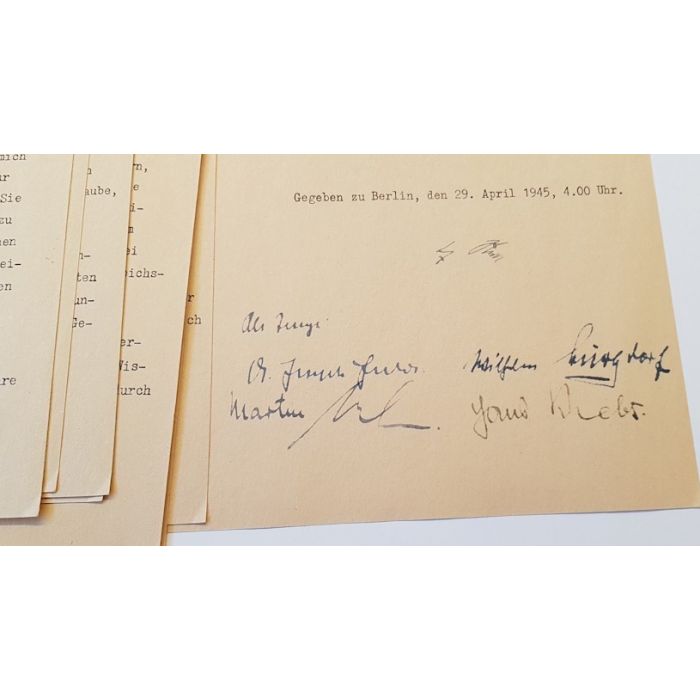 mich
ur
Sie
zu
nen
ei-
en
are
aube,
n-
ten
un-
Ge-
rn,
e
i-
m
ei
ichs-
r
ch
er-
Wis-
durch
Gegeben zu Berlin, den 29. April 1945, 4.00 Uhr.
Als Zeuge
Dr. Joseph Wilhelm Burgdorf
Martin Hans Krebs.